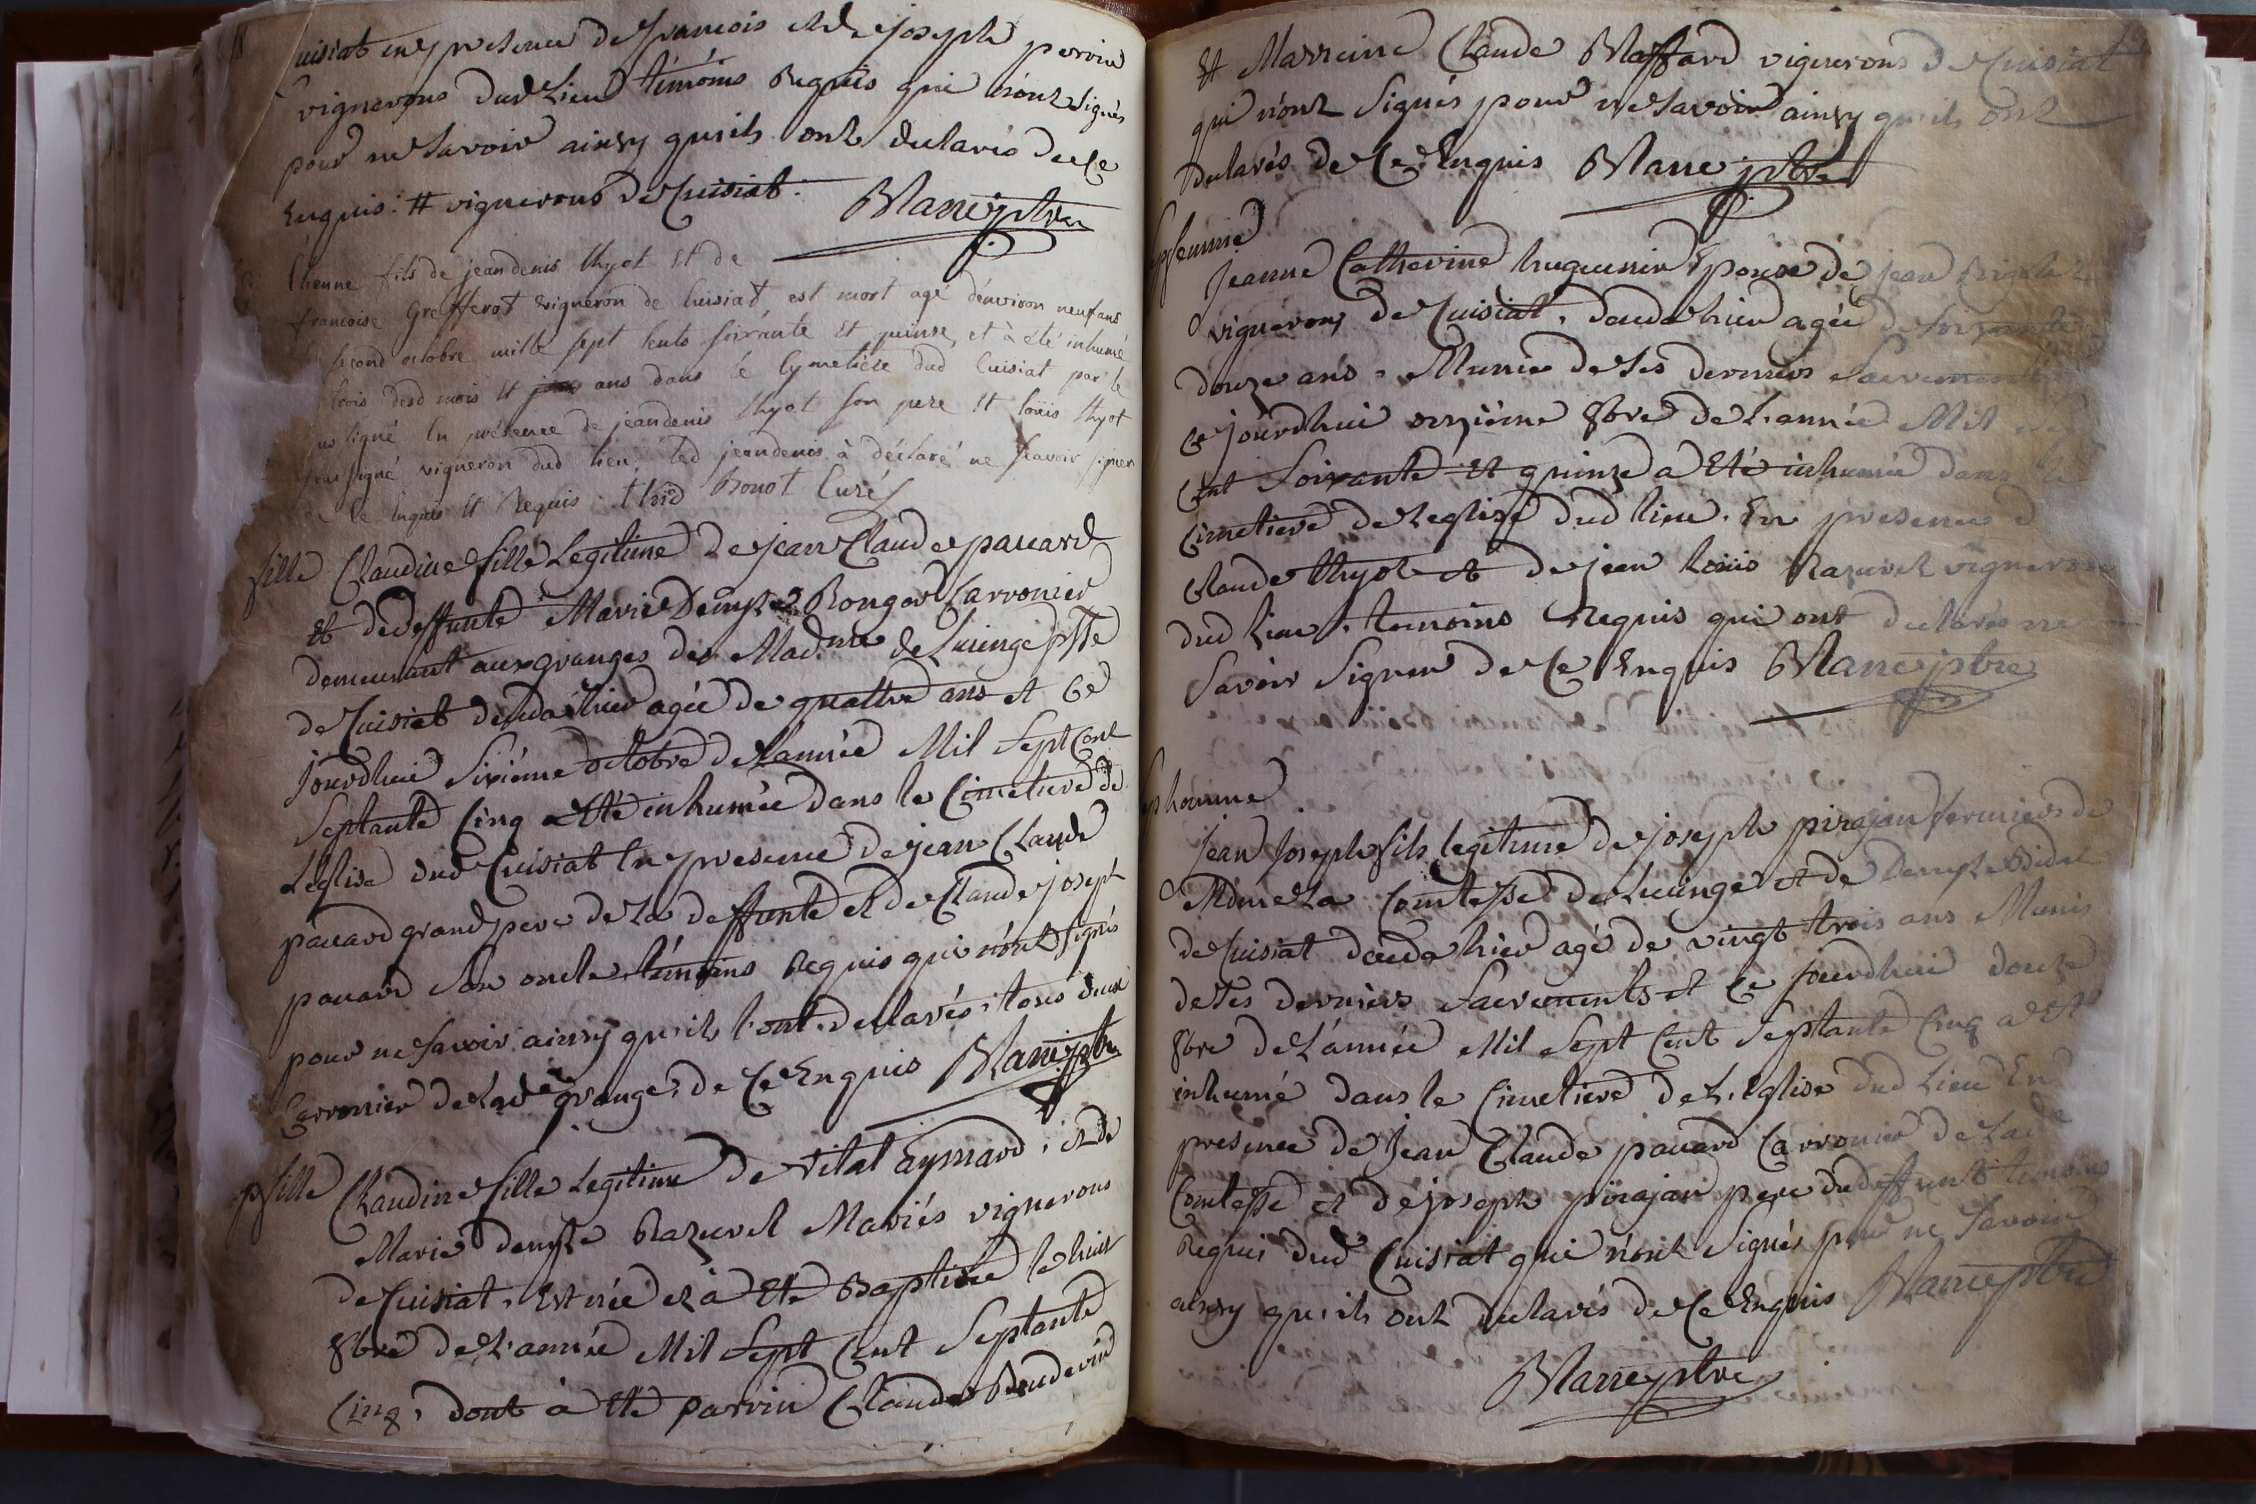 Cuisiat en presence de francois et de joseph perrin
vignerons dud Lieu témoins Requis qui n'ont signés
pour ne savoir ainsy qu'ils ont declarés de ce
Enquis. # vignerons de Cuisiat. Blanc ptre
Etienne fils de jeandenis thyot Et de
francoise Grefferot vigneron de Cuisiat est mort agé d'environ neuf ans
second octobre mille sept cents soixante Et quinse, et à été inhumé
trois desd mois Et ans dans le Cymetière dud Cuisiat par le
signé En présence de jeandenis thyot son pere Et loüis thyot
soussigné vigneron dud lieu, led jeandenis à déclaré ne scavoir signer
de ce Enquis Et Requis. thiod Bonot Curé
fille Claudine fille Legitime de jean Claude pauard
Et de deffunte Marie Denyse Rongod Carronier
demeurant aux granges de Madme de Luinge psse
de Cuisiat deceda hier agée de quattre ans et Ce
Jourdhui Sixième octobre de Lannée Mil Sept Cent
Septante Cinq a Eté inhumée dans le Cimetiere de
L'eglise dud Cuisiat En presence de jean Claude
pauard grand pere de La deffunte et de Claude joseph
pauard son oncle témoins Requis qui n'ont signés
pour ne savoir ainsy qu'ils l'ont declarés, tous deux
Carronier de Lade grange, de Ce Enquis Blanc ptre
fille Claudine fille Legitime de vital Eymard, et de
Marie denyse Razurel Mariés vignerons
de Cuisiat, Est née et à Eté Baptisée le huit
8bre de L'année Mil Sept Cent Septante
Cinq, dont à Eté parrin Claude Boudevin
Et Marreine Claude Maffard vignerons de Cuisiat
qui n'ont Signés pour ne savoir ainsy qu'ils ont
declarés de Ce Enquis Blanc ptre
femme
Jeanne Catherine huguenin Epouse de jean
vigneron de Cuisiat, deceda hier agée de soixante
douze ans, Munie de ses derniers Sacrements
Ce jourdhui onzième 8bre de L'année Mil
Cent Soixante Et quinze a Eté inhumée dans le
Cimetiere de L'eglise dud lieu. En presence de
Claude thyot et de jean Louis Razurel vignerons
dud Lieu, temoins Requis qui ont declarés ne
savoir signer de Ce Enquis Blanc ptre
homme
Jean Joseph fils legitime de joseph pirajan fermier de
Mdme La Comtesse de Luinge et de Denyse Bidal
de Cuisiat deceda hier agé de vingt trois ans Munis
de ses derniers Sacrements et Ce jourdhui douze
8bre de L'année Mil Sept Cent Septante Cinq a Eté
inhumé dans le Cimetiere de L'Eglise dud Lieu En
presence de Jean Claude pauard Carronier de Lade
Comtesse et de joseph pirajan pere du deffunt temoins
Requis dud Cuisiat qui n'ont Signés pour ne Savoir
ainsy qu'ils ont declarés de Ce Enquis Blanc ptre
Blanc ptre